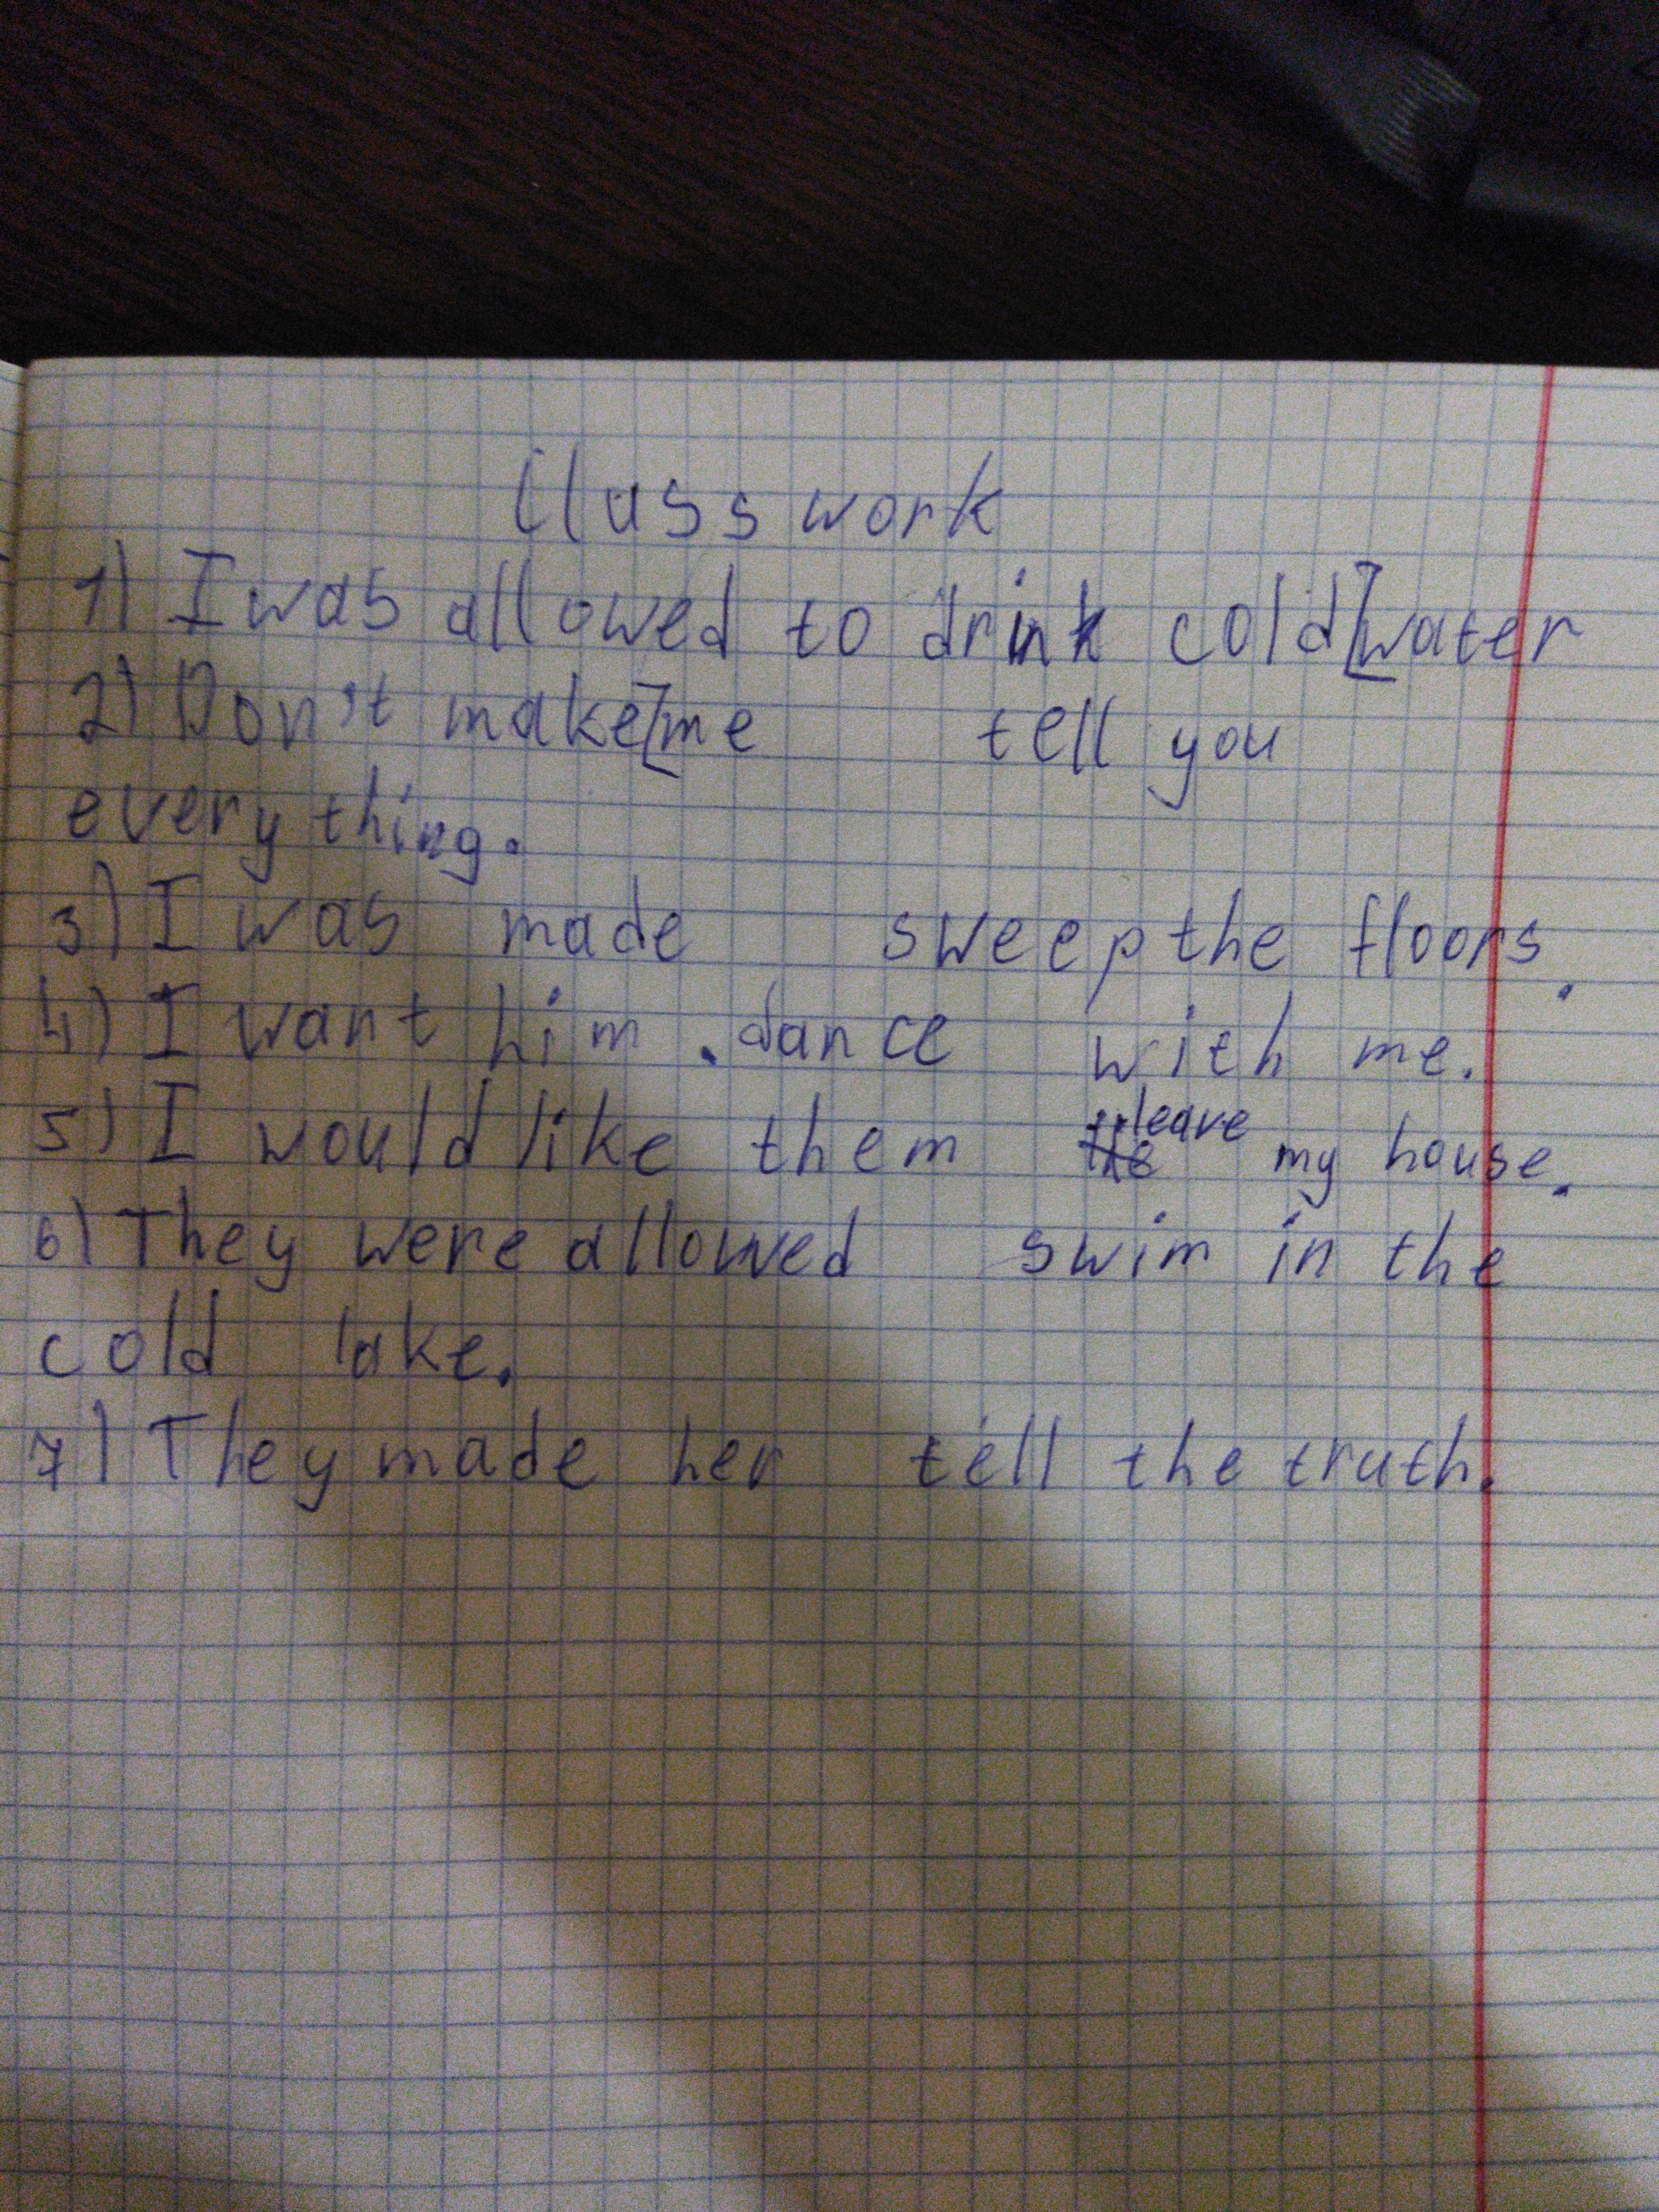 Class work
1) I was allowed to drink cold water
2) Don't make me tell you
everything.
3) I was made sweep the floors.
4) I want him . dance with me.
5) I would like them leave my house.
6) They were allowed swim in the
cold lake.
7) They made her tell the truth.